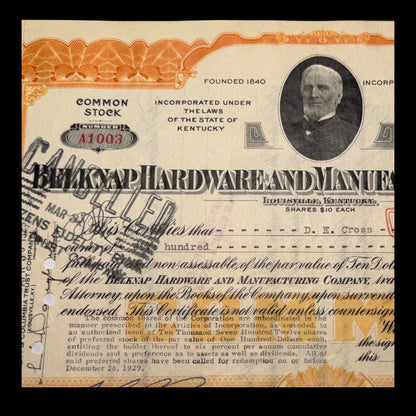 FOUNDED 1840
INCORP
COMMON
STOCK
INCORPORATED UNDER
THE LAWS
OF THE STATE OF
KENTUCKY
NUMBER
A1003
CANCELLED
MAR
BELKNAP HARDWARE AND MANUFA
LOUISVILLE, KENTUCKY,
SHARES $10 EACH
This Certifies that D. E. Cross
hundred
full paid and non-assessable, of the par value of Ten Dolla
of the BELKNAP HARDWARE AND MANUFACTURING COMPANY, tra
Attorney, upon the Books of the Company, upon surrend
endorsed. This Certificate is not valid unless countersign
The common shares of the Corporation are subordinated in the
manner prescribed in the Articles of Incorporation, as amended to
an authorized issue of Ten Thousand Seven Hundred Twelve shares
of preferred stock of the par value of One Hundred Dollars each,
entitling the holder thereof to six percent per annum cumulative
dividends and a preference as to assets as well as dividends. All of
said preferred shares have been called for redemption on or before
December 28, 1929.
W
the sign
this